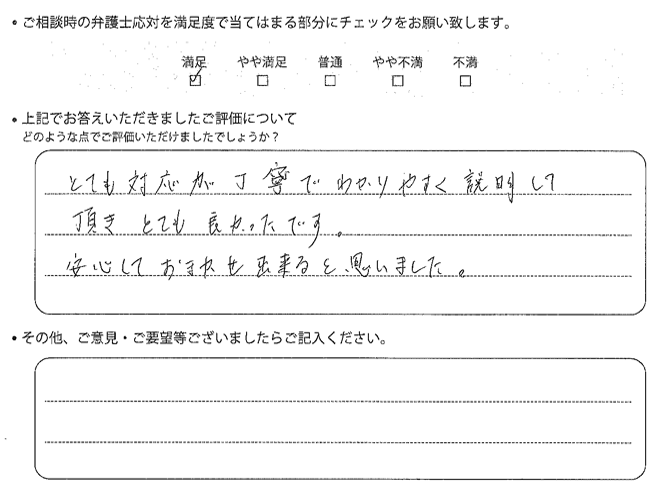 • ご相談時の弁護士応対を満足度で当てはまる部分にチェックをお願い致します。
満足 やや満足 普通 やや不満 不満
☑ □ □ □ □
• 上記でお答えいただきましたご評価について
どのような点でご評価いただけましたでしょうか？
とても対応が丁寧でわかりやすく説明して
頂きとても良かったです。
安心しておまかせ出来ると思いました。
• その他、ご意見・ご要望等ございましたらご記入ください。